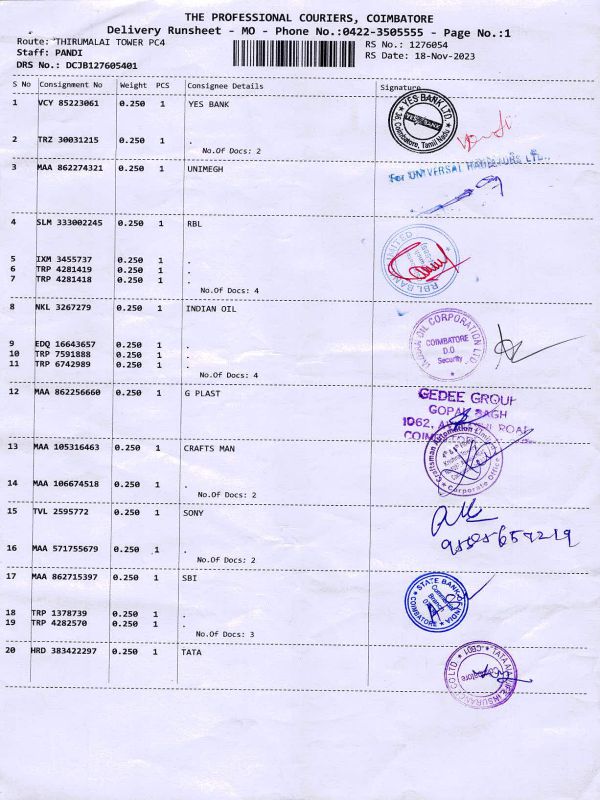 THE PROFESSIONAL COURIERS, COIMBATORE
Delivery Runsheet - MO - Phone No.:0422-3505555 - Page No.:1
Route: THIRUMALAI TOWER PC4
RS No.: 1276054
Staff: PANDI
RS Date: 18-Nov-2023
DRS No.: DCJB127605401
S No Consignment No Weight PCS Consignee Details Signature
1 VCY 85223061 0.250 1 YES BANK
YES BANK LTD.
YES BANK
36, Coimbatore, Tamil Nadu
2 TRZ 30031215 0.250 1 .
No.Of Docs: 2
3 MAA 862274321 0.250 1 UNIMEGH
For UNIVERSAL LTD.,
4 SLM 333002245 0.250 1 RBL
RBL BANK LIMITED
5 IXM 3455737 0.250 1 .
6 TRP 4281419 0.250 1 .
7 TRP 4281418 0.250 1 .
No.Of Docs: 4
8 NKL 3267279 0.250 1 INDIAN OIL
INDIAN OIL CORPORATION LTD.
COIMBATORE
D.O
Security
9 EDQ 16643657 0.250 1 .
10 TRP 7591888 0.250 1 .
11 TRP 6742989 0.250 1 .
No.Of Docs: 4
12 MAA 862256660 0.250 1 G PLAST
GEDEE GROUP
GOPAL BAGH
1062, ROAD
13 MAA 105316463 0.250 1 CRAFTS MAN
Craftsman Automation Limited
Corporate Office
14 MAA 106674518 0.250 1 .
No.Of Docs: 2
15 TVL 2595772 0.250 1 SONY
16 MAA 571755679 0.250 1 .
No.Of Docs: 2
17 MAA 862715397 0.250 1 SBI
STATE BANK OF INDIA
Commercial
Branch
COIMBATORE
18 TRP 1378739 0.250 1 .
19 TRP 4282570 0.250 1 .
No.Of Docs: 3
20 HRD 383422297 0.250 1 TATA
TATA AIA LIFE INSURANCE CO LTD
CB01
Coimbatore